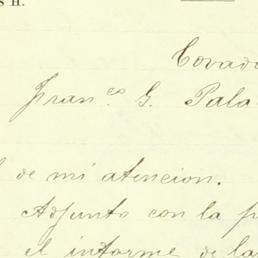 S H.
Covad
Fran.co G. Pala
de mi atencion.
Adjunto con la p
el informe de la